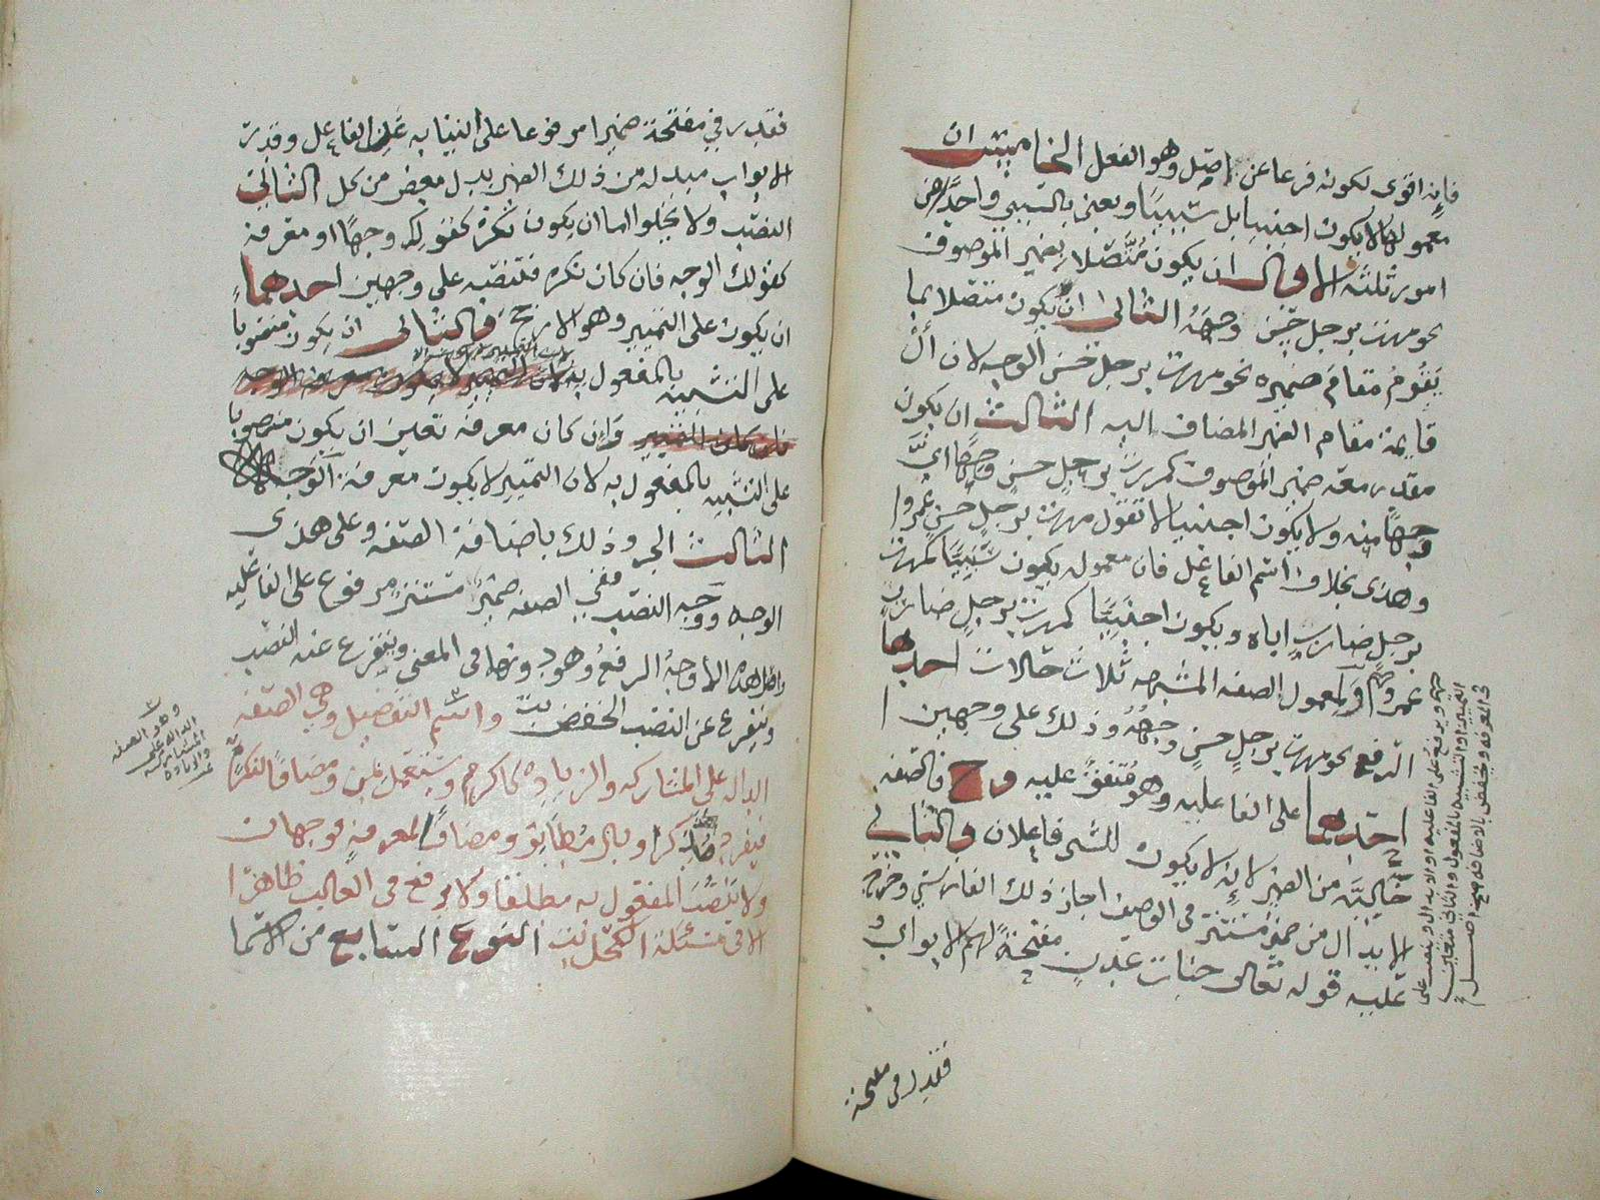 فإنه اقوى لكونه فرعا عن اصل وهو الفعل الخامس ان
معمولها لا يكون اجنبيا بل سببيا ونعني بالسببي واحدا من
امور ثلثة الاول ان يكون متصلا بضمير الموصوف
نحو مررت برجل حسن وجهه الثاني ان يكون متصلا بما
يقوم مقام ضميره نحو مررت برجل حسن الوجه لان أل
قايمة مقام الضمير المضاف اليه الثالث ان يكون
مقدر معه ضمير الموصوف كمررت برجل حسن وجها اي
وجها منه ولا يكون اجنبيا لا تقول مررت برجل حسن عمروا
وهذى بخلاف اسم الفاعل فان معموله يكون سببيا كمررت
برجل ضارب اباه ويكون اجنبيا كمررت برجل ضارب
عمروا ولمعمول الصفه المشبهه ثلاث حالات احدها
الرفع نحو مررت برجل حسن وجهه وذلك على وجهين
احدهما على الفاعليه وهو متفق عليه وح فالصفه
خاليه من الضمير لانه لا يكون للشي فاعلان والثاني
الابدال من ضمير مستتر في الوصف اجاز ذلك الفارسي وخرج
عليه قوله تعالى جنات عدن مفتحة لهم الابواب
فقدر في مفتحة
فقدر في مفتحة ضميرا مرفوعا على النيابه عن الفاعل وقدرت
الابواب مبدله من ذلك الضمير بدل بعض من كل الثاني
النصب ولا يخلوا اما ان يكون نكرة كقولك وجها او معرفة
كقولك الوجه فان كان نكره فنصبه على وجهين احدهما
ان يكون على التمييز وهو الارجح والثاني ان يكون منصوبا
على التشبيه بالمفعول به
وان كان معرفة تعين ان يكون منصوبا
على التشبيه بالمفعول به لان التمييز لا يكون معرفة الوجه
الثالث الجر وذلك باضافة الصفه وعلى هذى
الوجه ووجه النصب ففي الصفه ضمير مستتر مرفوع على الفاعليه
واصل هذه الاوجه الرفع وهو دونها في المعنى ويتفرع عنه النصب
ويتفرع عن النصب الخفض واسم التفضيل وهي الصفه
الداله على المشاركه والزياده كاكرم ويستعمل بمن ومضافا لنكرة
فيفرد ويذكر وبال فيطابق ومضافا لمعرفة فوجهان
ولا ينصب المفعول به مطلقا ولا يرفع في الغالب ظاهرا
الا في مسئلة الكحل النوع السابع من الاسما
وهو الصفه
الداله على
المشاركه
والزياده